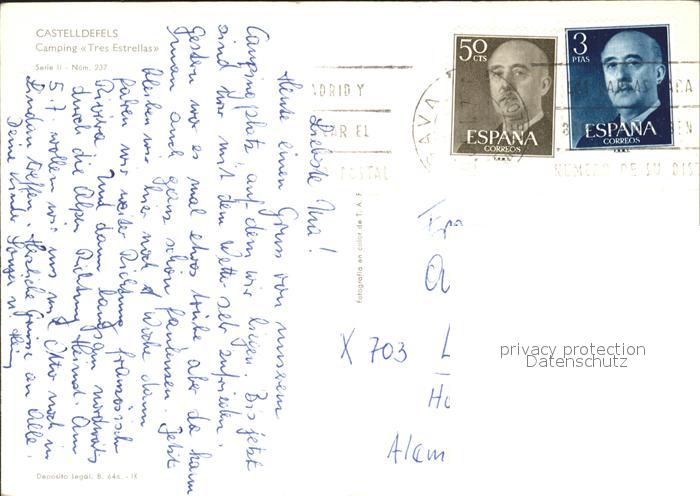 CASTELLDEFELS
Camping «Tres Estrellas»
Serie II - Núm. 237
Liebste Ina!
Heute einen Gruss von unserem
Campingplatz, auf dem wir liegen. Bis jetzt
sind wir mit dem Wetter sehr zufrieden.
Gestern war es mal etwas trübe aber da kann
man auch ganz schön faulenzen. Jetzt
bleiben wir hier noch 1 Woche dann
fahren wir weiter Richtung französische
Riviera und dann langsam nordwärts
durch die Alpen Richtung Heimat. Am
5.7. wollen wir uns mit Otto noch in
Lindau treffen. Herzliche Grüsse an Alle.
Deine
Depósito Legal, B. 646. - IX
Fotografía en color de T. A. F.
50
CTS
ESPAÑA
CORREOS
3
PTAS
ESPAÑA
CORREOS
GAVA
NUMERO DE SU DIS
X 703
Alem
privacy protection
Datenschutz